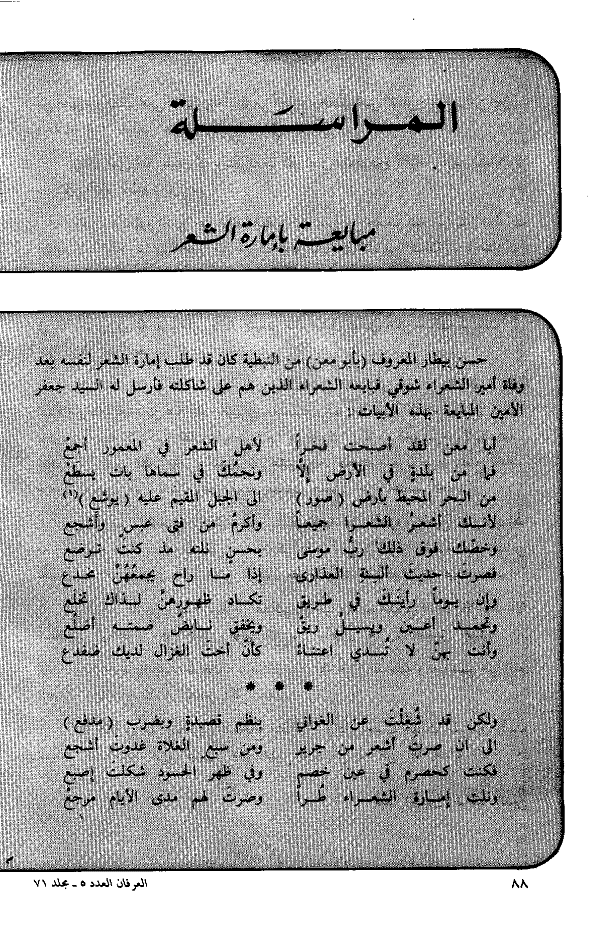 المراسلة
مبايعة بإمارة الشعر
حسن بيطار المعروف (بأبو معن) من النبطية كان قد طلب إمارة الشعر لنفسه بعد
وفاة أمير الشعراء شوقي فبايعه الشعراء الذين هم على شاكلته فارسل له السيد جعفر
الأمين المبايعة بهذه الأبيات :
أبا معن لقد أصبحت فخراً لأهل الشعر في المعمور أجمعْ
فما من بلدةٍ في الأرض إلّا ونجمُك في سماها بات يسطعْ
من البحر المحيط بأرض (صور) الى الجبل المقيم عليه (يوشع)(١)
لأنك أشعرُ الشعرا جميعاً وأكرمُ من فتى عبسٍ وأشجع
وخصّك فوق ذلك ربُّ موسى بحسنٍ نلته مذ كنتَ ترضع
فصرتَ حديث ألسنة العذارى إذا ما راح يجمعُهُنّ مخدع
وإن يوماً رأينكَ في طريق تكاد ظهورهنّ لذاك تخلع
وتجمد أعين ويسيلُ ريق ويخفق نابضٌ ضمته أضلُع
وأنت بهنّ لا تُبدي اعتناءً كأنّ أختَ الغزال لديك ضفدع
* * *
ولكن قد شُغِلْتَ عن الغواني بنظم قصيدةٍ وبضرب (مدفع)
الى ان صرتَ أشعر من جرير ومن سبع الفلاة غدوتَ أشجع
فكنت كحصرم في عين خصم وفي ظهر الحسود شكلت إصبع
ونلت إمارة الشعراء طُراً وصرتَ لهم مدى الأيام مرجعْ
٨٨
العرفان العدد ٥ ـ مجلد ٧١